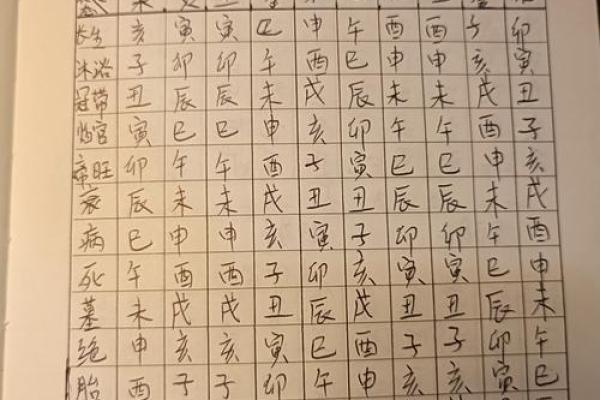 长生 亥 寅 寅 巳 申 午 酉 酉 子 卯
沐浴 子 卯 卯 午 酉 巳 申 申 亥 寅
冠带 丑 辰 辰 未 戌 辰 未 未 戌 丑
临官 寅 巳 巳 申 亥 卯 午 午 酉 子
帝旺 卯 午 午 酉 子 寅 巳 巳 申 亥
衰 辰 未 未 戌 丑 丑 辰 辰 未 戌
病 巳 申 申 亥 寅 子 卯 卯 午 酉
死 午 酉 酉 子 卯 亥 寅 寅 巳 申
墓 未 戌 戌 丑 辰 戌 丑 丑 辰 未
绝 申 亥 亥 寅 巳 酉 子 子 卯 午
胎 酉 子 子 卯 午 申 亥 亥 寅 巳